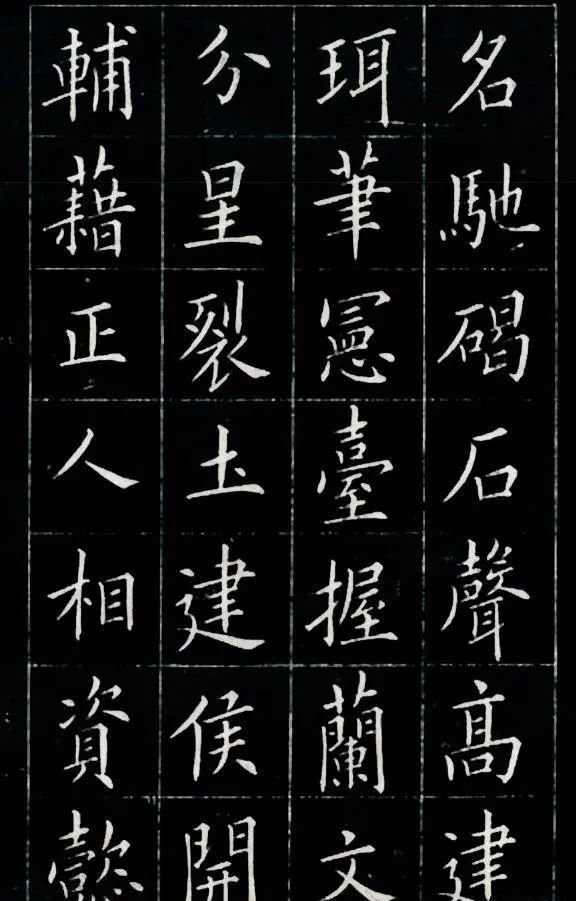 名馳碣石聲髙建
珥筆憲臺握蘭文
分星裂土建侯開
輔藉正人相資懿